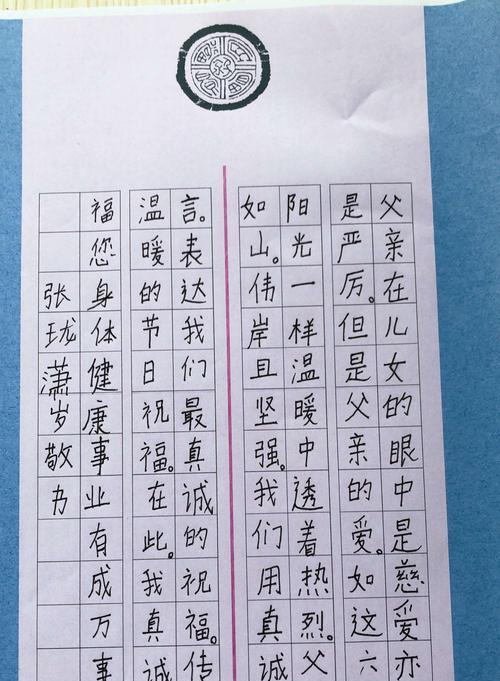 父亲在儿女的眼中是慈爱亦
是严厉。但是父亲的爱。如这六
阳光一样温暖中透着热烈。父
如山。伟岸且坚强。我们用真诚
言。表达我们最真诚的祝福。传
温暖的节日祝福。在此。我真诚
福您身体健康事业有成万事
张珑潇岁敬书